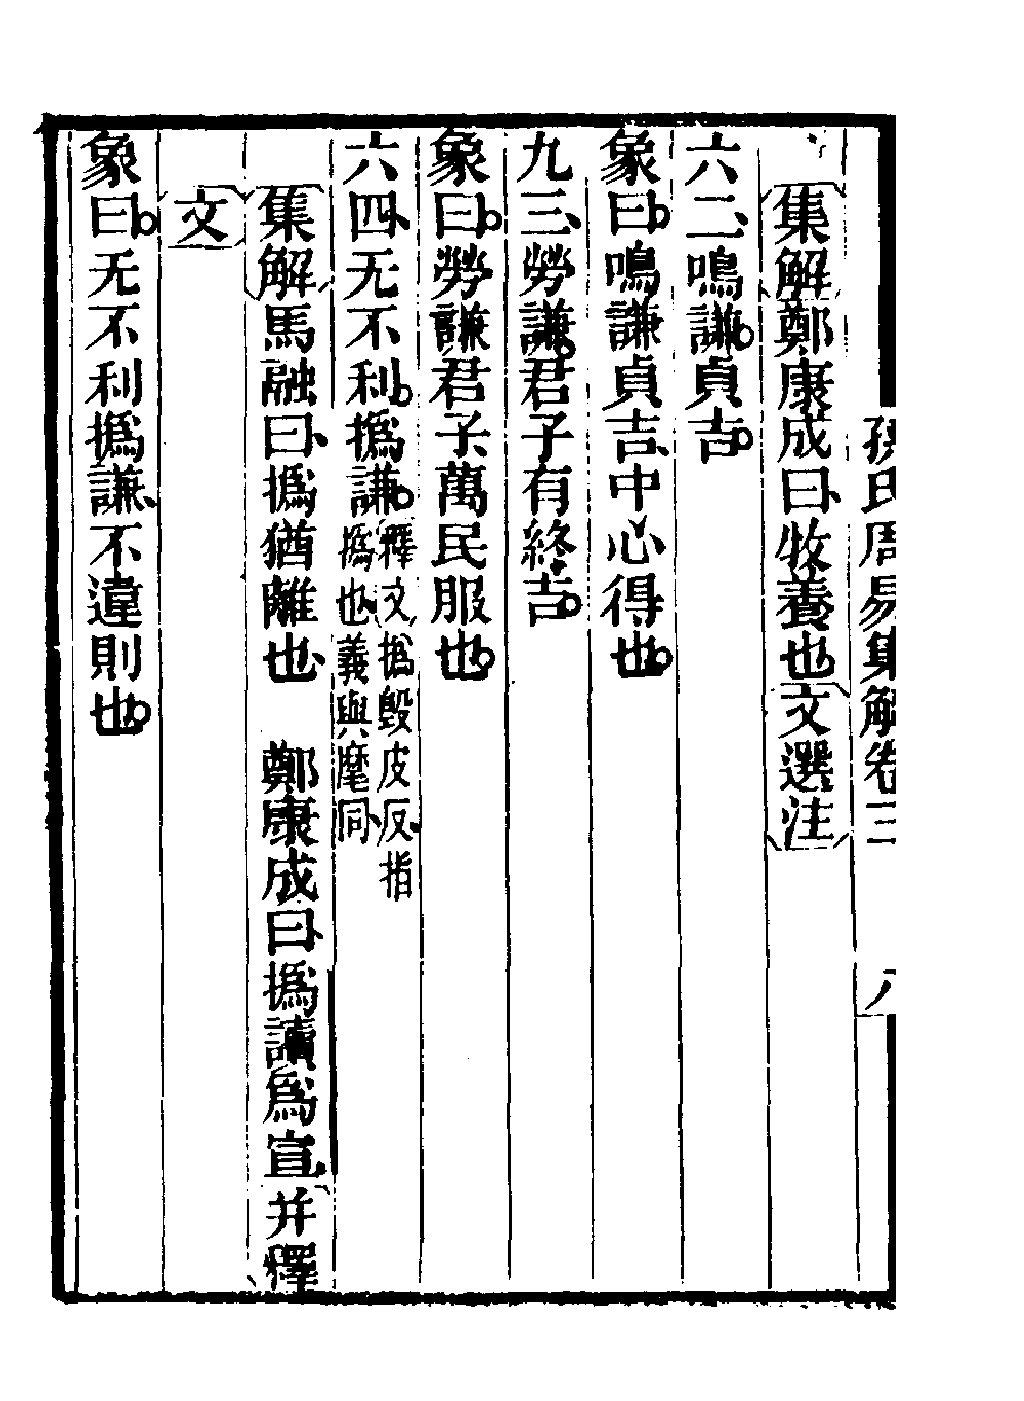 孫氏周易集解卷三 八
集解鄭康成曰、牧養也文選注
六二、鳴謙。貞吉。
象曰。鳴謙貞吉、中心得也。
九三、勞謙。君子有終吉。
象曰。勞謙君子萬民服也。
六四、无不利。撝謙。釋文撝毀皮反、指
撝也、義與麾同、
集解馬融曰、撝猶離也、 鄭康成曰、撝讀爲宣、并釋
文
象曰。无不利撝謙、不違則也。